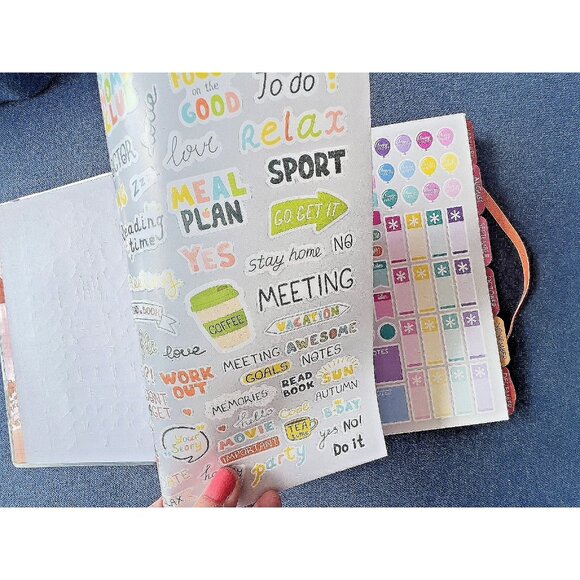 FOCUS
on the
GOOD
To do !
love
relax
love
MEAL
PLAN
SPORT
GO GET IT
Reading
time
YES
stay home
NO
MEETING
COFFEE
VACATION
love
MEETING
AWESOME
GOALS
NOTES
WORK
OUT
READ
BOOK
SUN
MEMORIES
AUTUMN
hello
Cool
B-DAY
MOVIE
TEA
time
your
Story
IMPORTANT
yes
NO!
party
Do it
NOTES